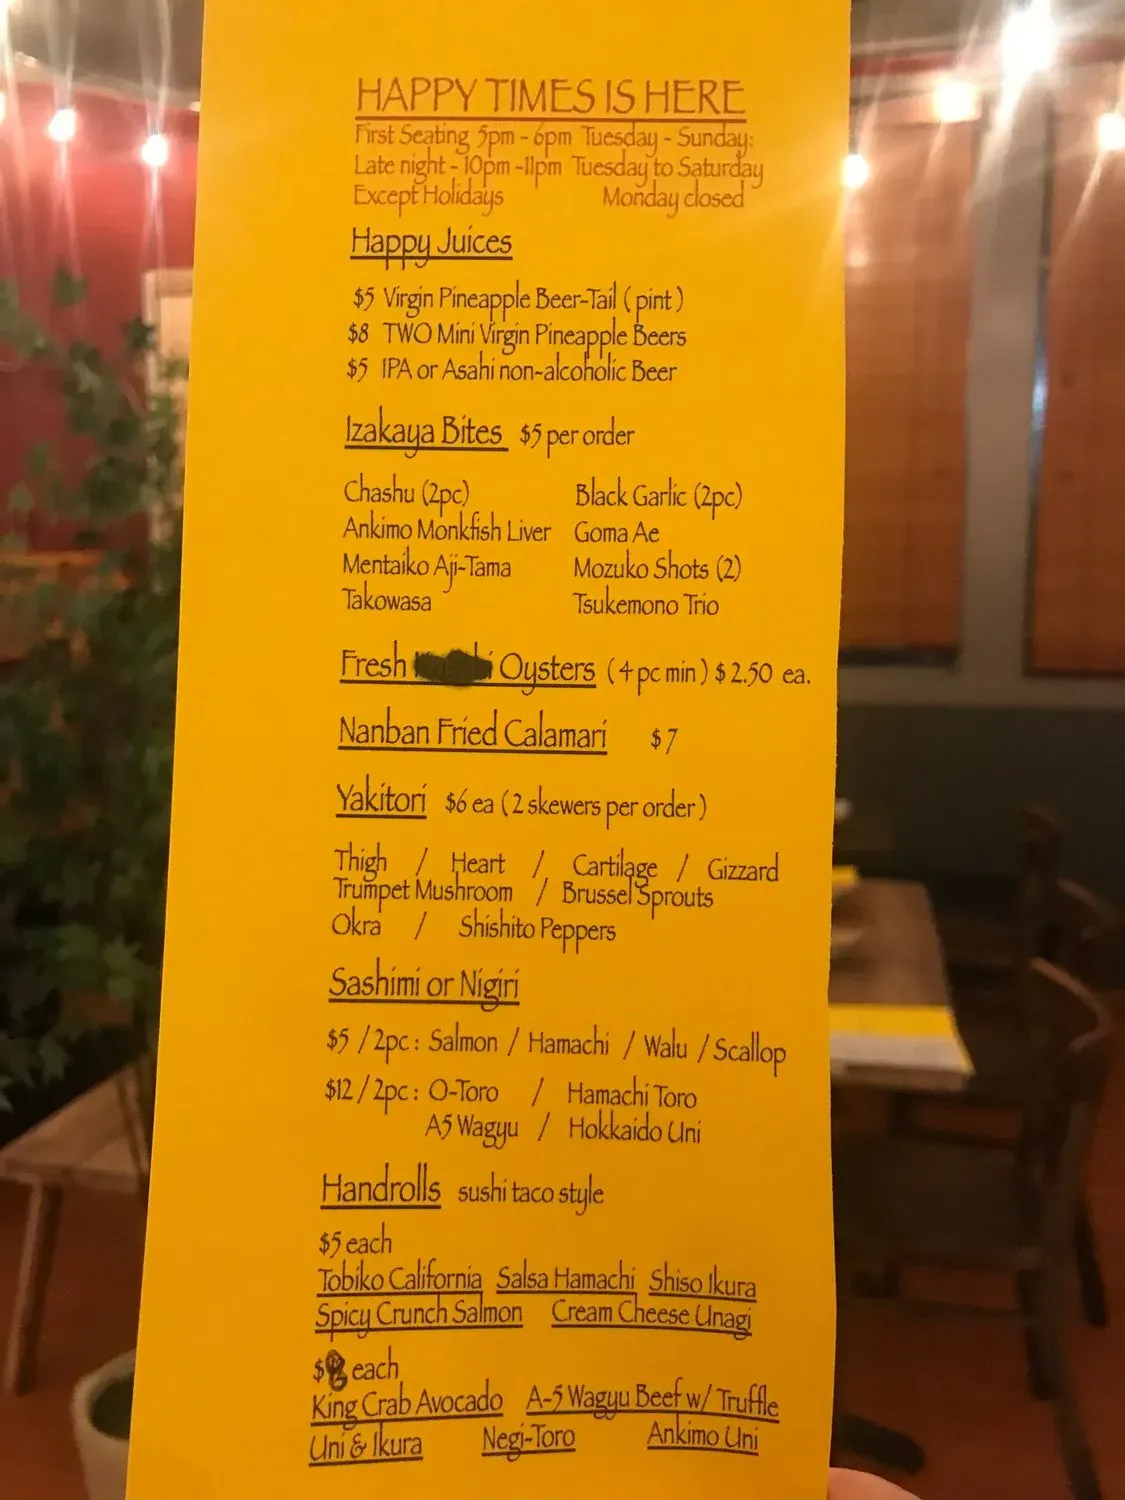 HAPPY TIMES IS HERE
First Seating 5pm - 6pm Tuesday - Sunday:
Late night - 10pm -11pm Tuesday to Saturday
Except Holidays Monday closed
Happy Juices
$5 Virgin Pineapple Beer-Tail ( pint )
$8 TWO Mini Virgin Pineapple Beers
$5 IPA or Asahi non-alcoholic Beer
Izakaya Bites $5 per order
Chashu (2pc) Black Garlic (2pc)
Ankimo Monkfish Liver Goma Ae
Mentaiko Aji-Tama Mozuko Shots (2)
Takowasa Tsukemono Trio
Fresh Oysters ( 4 pc min ) $ 2.50 ea.
Nanban Fried Calamari $ 7
Yakitori $6 ea ( 2 skewers per order )
Thigh / Heart / Cartilage / Gizzard
Trumpet Mushroom / Brussel Sprouts
Okra / Shishito Peppers
Sashimi or Nigiri
$5 / 2pc : Salmon / Hamachi / Walu / Scallop
$12 / 2pc : O-Toro / Hamachi Toro
A5 Wagyu / Hokkaido Uni
Handrolls sushi taco style
$5 each
Tobiko California Salsa Hamachi Shiso Ikura
Spicy Crunch Salmon Cream Cheese Unagi
$8 each
King Crab Avocado A-5 Wagyu Beef w/ Truffle
Uni & Ikura Negi-Toro Ankimo Uni